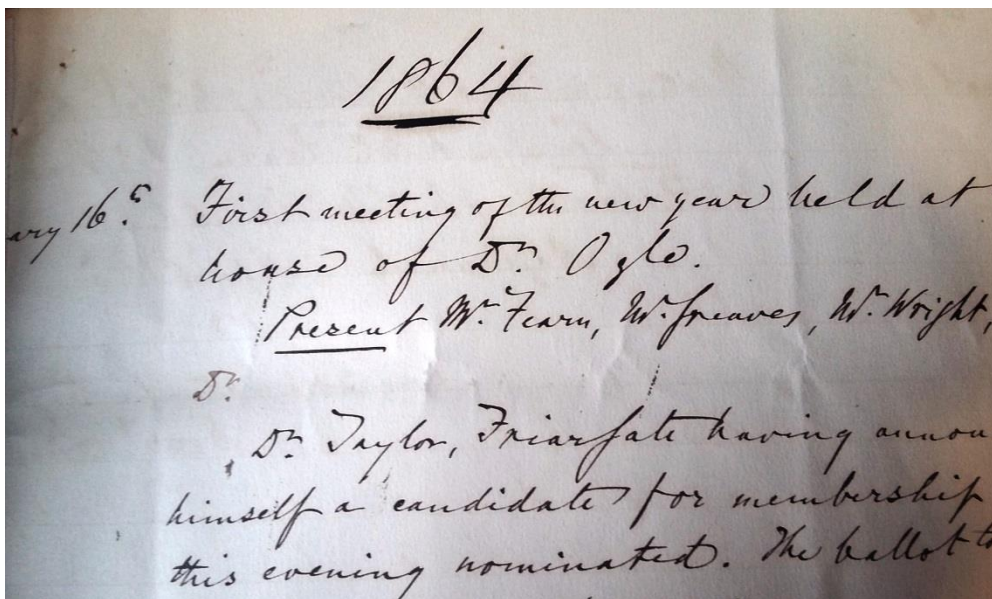 1864
ary 16th First meeting of the new year held at
house of Dr. Ogle.
Present Mr. Fearn, Mr. Greaves, Mr. Wright,
Dr.
Dr. Taylor, Friargate having annou
himself a candidate for membership
this evening nominated. The ballot to